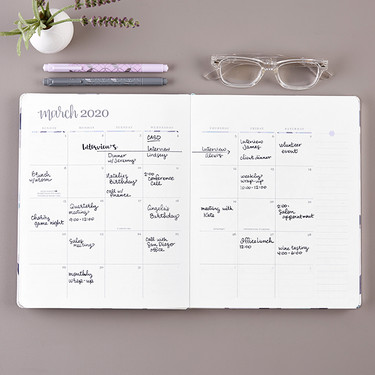 march 2020
Interviews
Dinner
w/ Jeremy
Interview
Lindsey
Interview
Interview
James
client dinner
volunteer
event
Brunch
w/ Mom
Natalie's
Birthday
call w/
finance
conference
call
weekly
wrap-up
10:00-12:00
Charity
game night
Quarterly
meeting
10:00-12:00
Angela's
Birthday
meeting with
Kate
Salon
appointment
Sales
meeting
call with
San Diego
office
Office lunch
12:00
wine tasting
4:00-6:00
monthly
wrap-up